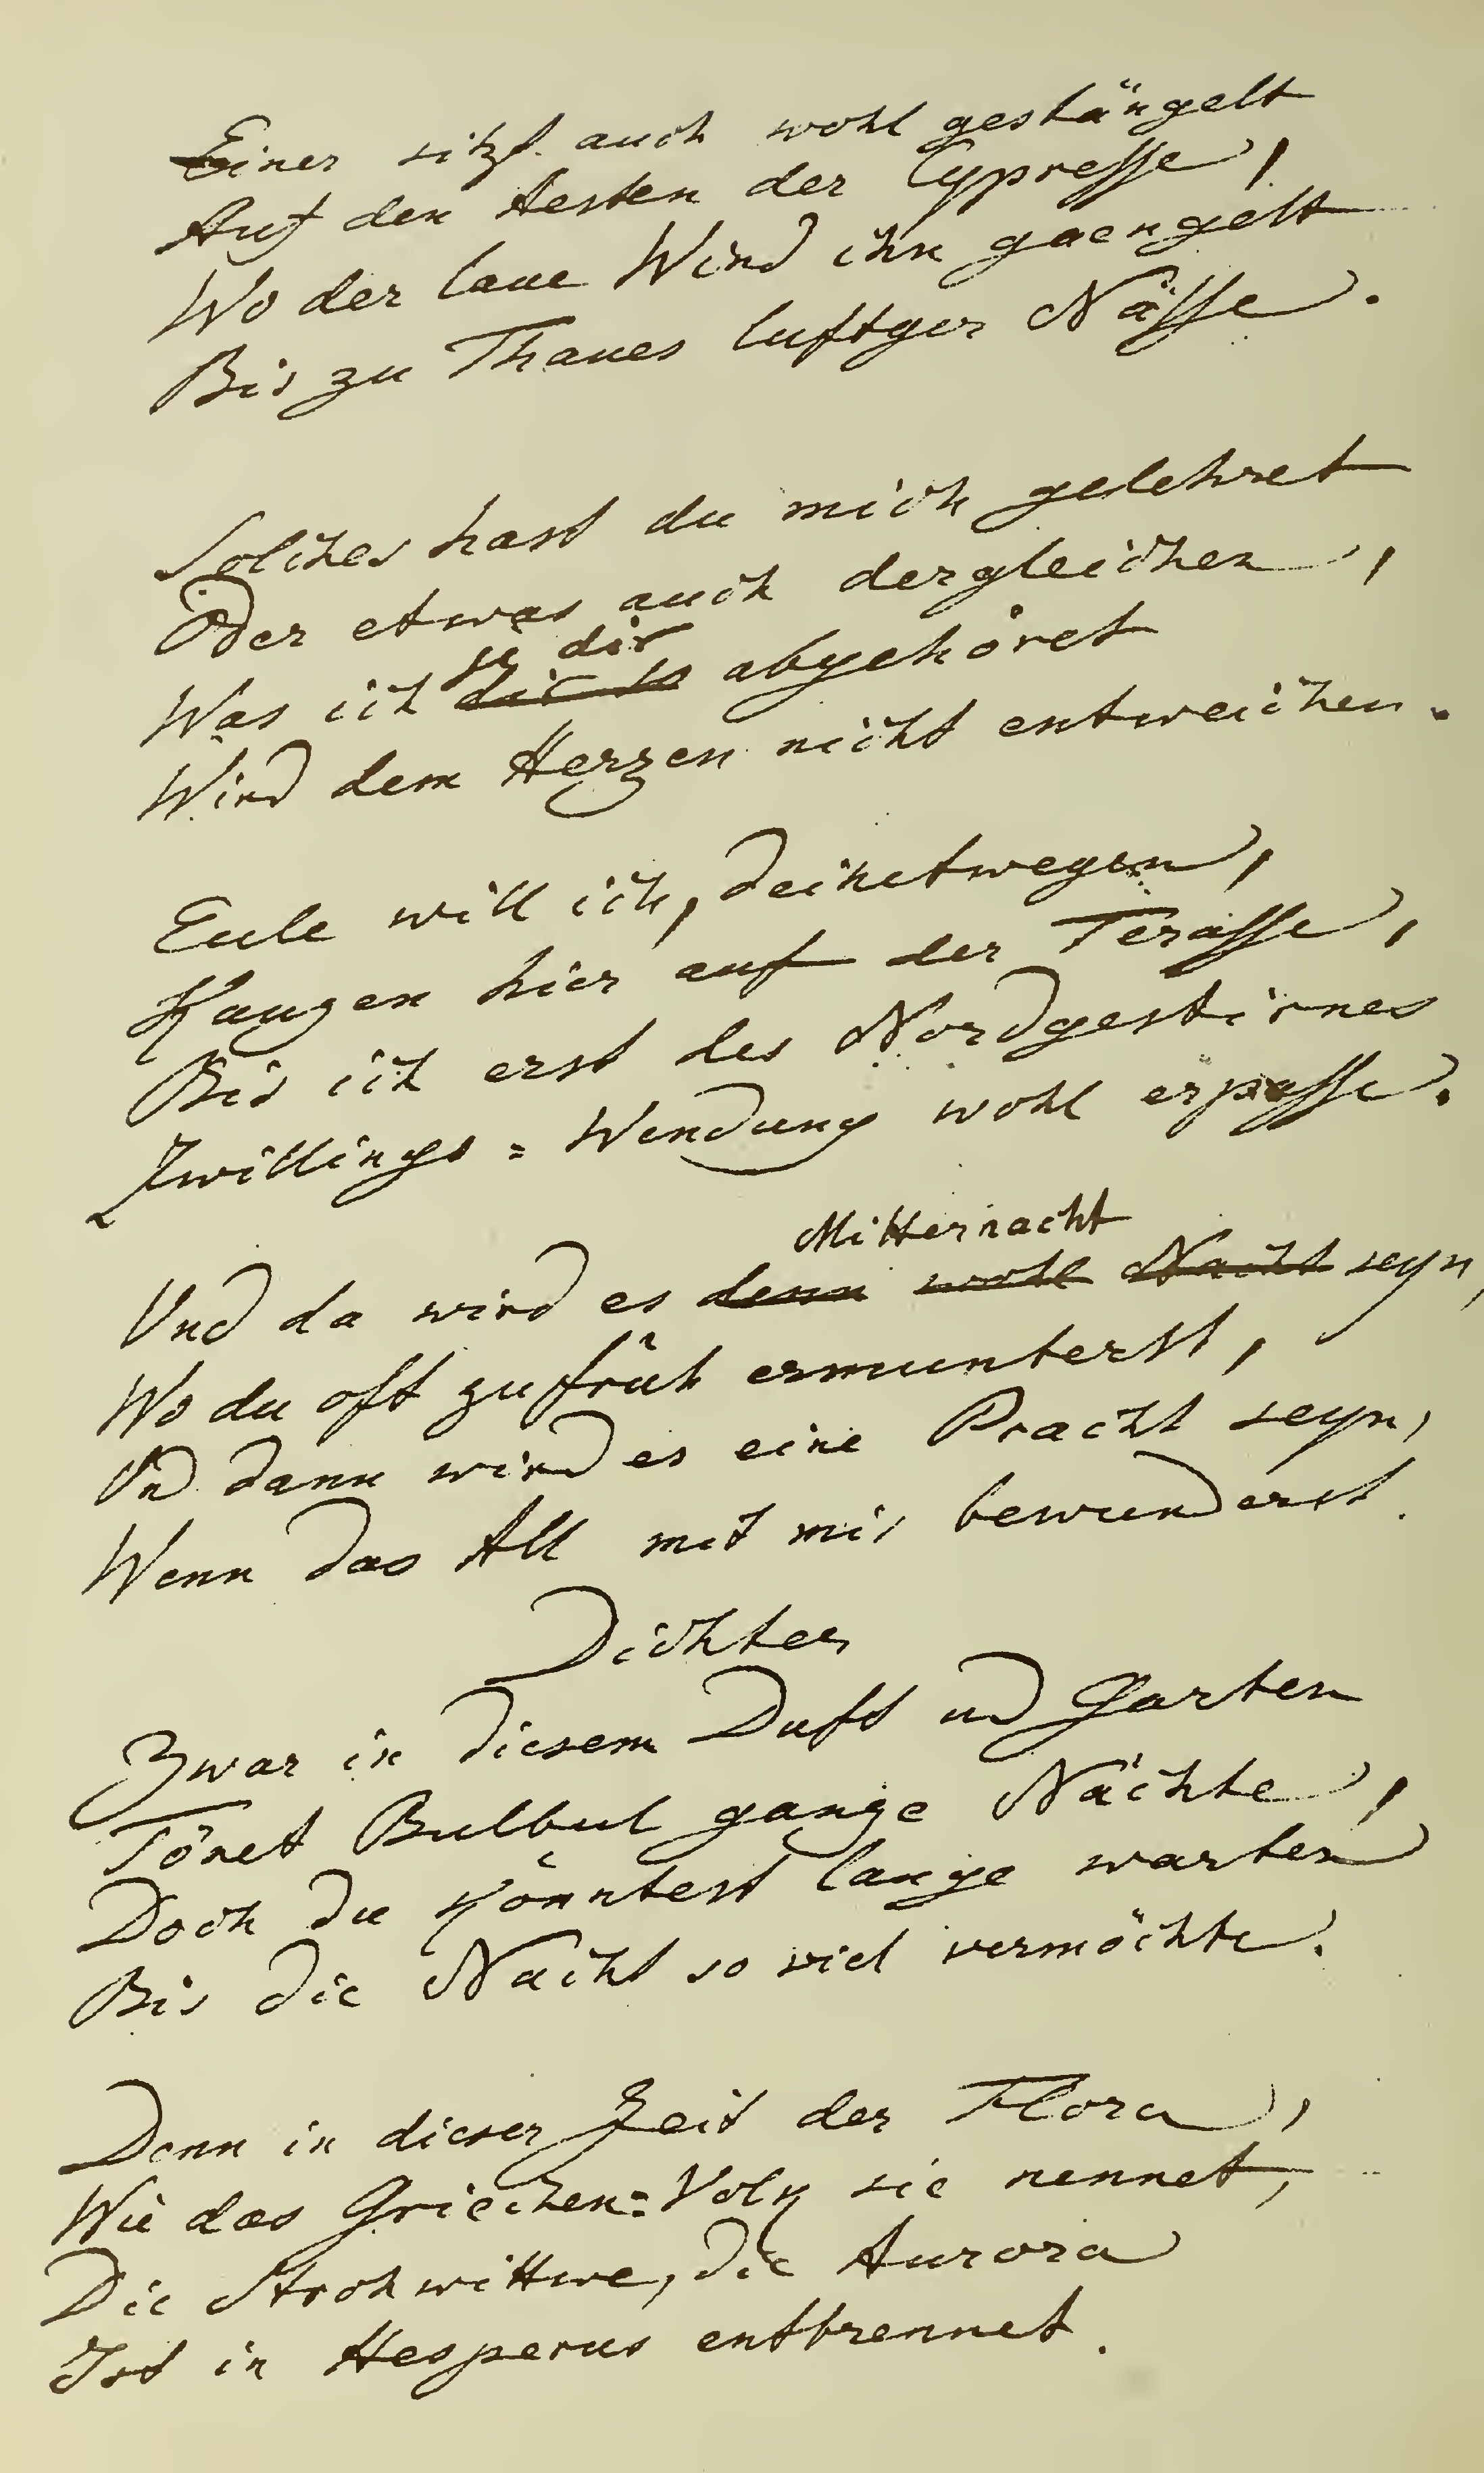 Einer sitzt auch wohl gestängelt
Auf den Aesten der Cypresse,
Wo der laue Wind ihn gaengelt
Bis zu Thaues luftger Nässe.
Solches hast du mich gelehret
Oder etwas auch dergleichen,
je dir
Was ich dir so abgehöret
Wird dem Herzen nicht entweichen.
Eule will ich, deinetwegen,
Kauzen hier auf der Terasse,
Bis ich erst des Nordgestirnes
Zwillings=Wendung wohl erpasse.
Mitternacht
Und da wird es denn wohl Nacht seyn,
Wo du oft zu früh ermunterst,
Und dann wird es eine Pracht seyn,
Wenn das All mit mir bewunderst.
Dichter
Zwar in diesem Duft und Garten
Tönet Bulbul ganze Nächte,
Doch du könntest lange warten
Bis die Nacht so viel vermöchte.
Denn in dieser Zeit der Flora,
Wie das Griechen=Volk sie nennet,
Die Strohwittwe, die Aurora
Ist in Hesperus entbrennet.